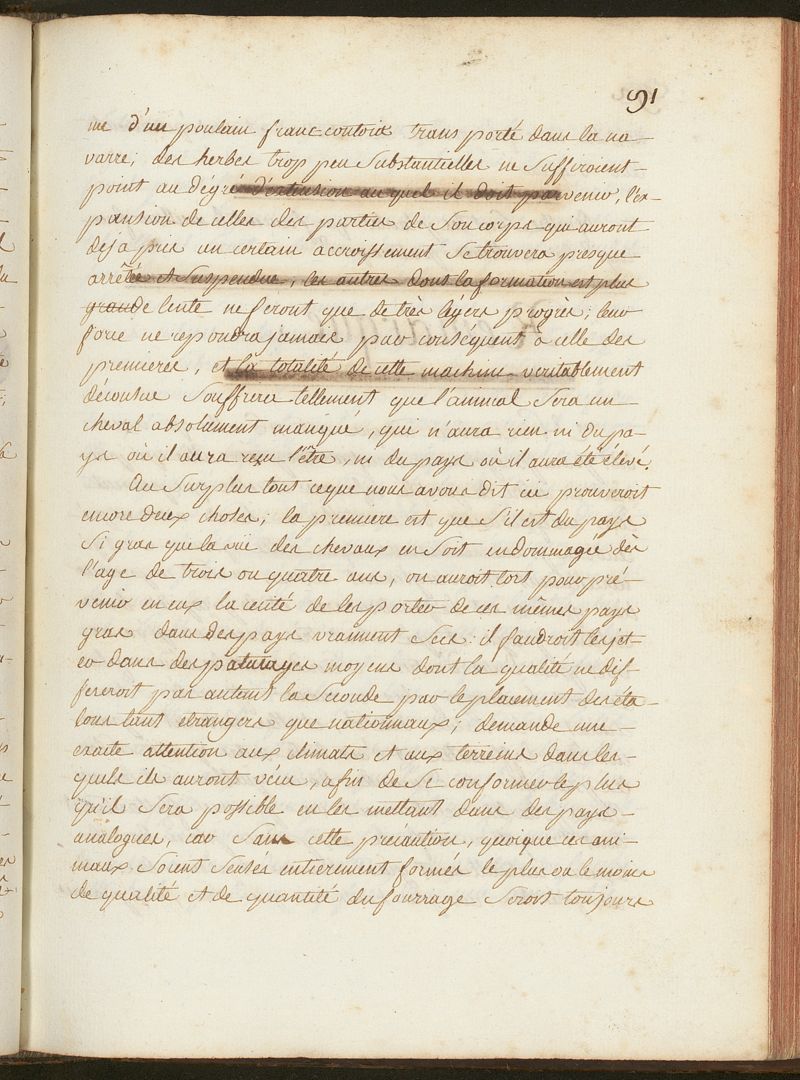 91
me d'un poulain franc-contoix trans porté dans la na-
varre; des herbes trop peu Substantielles ne Suffiroient-
point au dégré d'extension au quel il doit parvenir, l'ex-
pansion de celles des parties de Son corps qui auront
deja pris un certain accroissement Se trouvera presque
arrêtée et Suspendue, les autres dont la formation est plus
grande lente ne feront que de très légers progrès; leur
force ne repondra jamais par conséquent à celle des
premieres, et la totalité de cette machine veritablement
décousue Souffrira tellement que l'animal Sera un-
cheval absolument manqué, qui n'aura rien ni du pa-
ys où il aura reçu l'être, ni du pays où il aura été élevé.
Au Surplus tout ceque nous avons dit ici prouveroit
encore deux choses; la premiere est que S'il est du pays
Si gras que la vüe des chevaux en Soit endommagée dès
l'age de trois ou quatre ans, on auroit tort pour pré-
venir en eux la cécité de les porter de ces mêmes pays
gras dans des pays vraiment Secs: il faudroit les jet-
er dans des paturages moyens dont la qualité ne dif-
fereroit pas autant la Seconde par le placement des éta-
lons tant etrangers que nationnaux; demande une-
exacte attention aux climats et aux terreins dans les-
quels ils auront vécu, afin de Se conformer le plus
qu'il Sera possible en les mettant dans des pays-
analogues, car Sans cette précaution, quoique ces ani-
maux Soient Sensés entierement formés le plus ou le moins
de qualité et de quantité du fourrage Seroit toujours